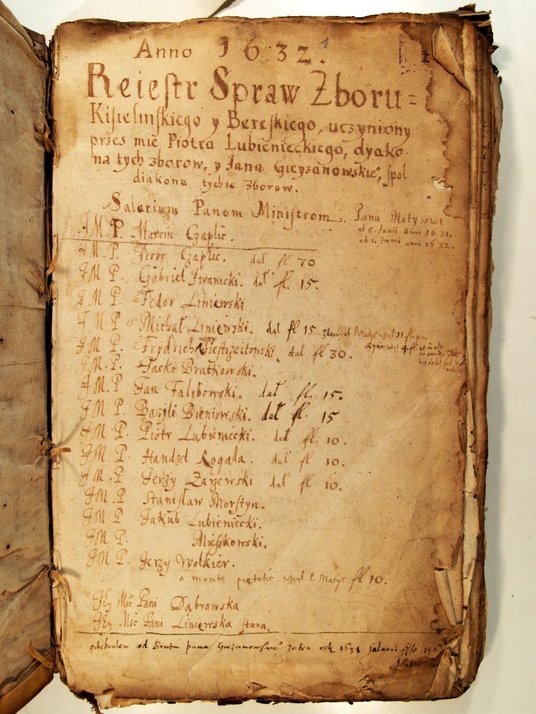 Anno 1632.
Reiestr Spraw Zboru=
Kisielinskiego y Bereskiego, uczyniony
przes mie Piotra Lubienieckiego, dyako-
na tych zborow, y Jana Gieysanowskie, spol
diakona tychze zborow.
Salarium Panom Ministrom.
Panu Matysowi
a 5 Junii anni 1631.
ad 1. Junii anni 1632.
J M P. Marcin Czaplic.
J M P. Jerzy Czaplic. dał fl 70
J M P. Gabriel Jwanicki. dał fl. 15.
J M P. Fedor Liniewski
J M P. Michal Liniewski. dał fl 15
J M P. Fridrich dał fl 30.
J M P. Jacko Bratkowski.
J M P. Jan Falibowski. dał fl. 15.
J M P. Bazyli Bieniowski. dał fl. 15
J M P. Piotr Lubieniecki. dał fl. 10.
J M P. Handzel Rogala. dał fl 10.
J M P. Jerzy Zarzewski dał fl 10.
J M P Stanislaw Morstyn.
J M P. Jakub Lubieniecki.
J M P. Mieszkowski.
J M P. Jerzy Wolkier.
a monte pietatis fl 10.
Jey Msc Pani Dąbrowska
Jey Msc Pani Liniewska stara
odebralem od Brata pana rok 1632 salarii